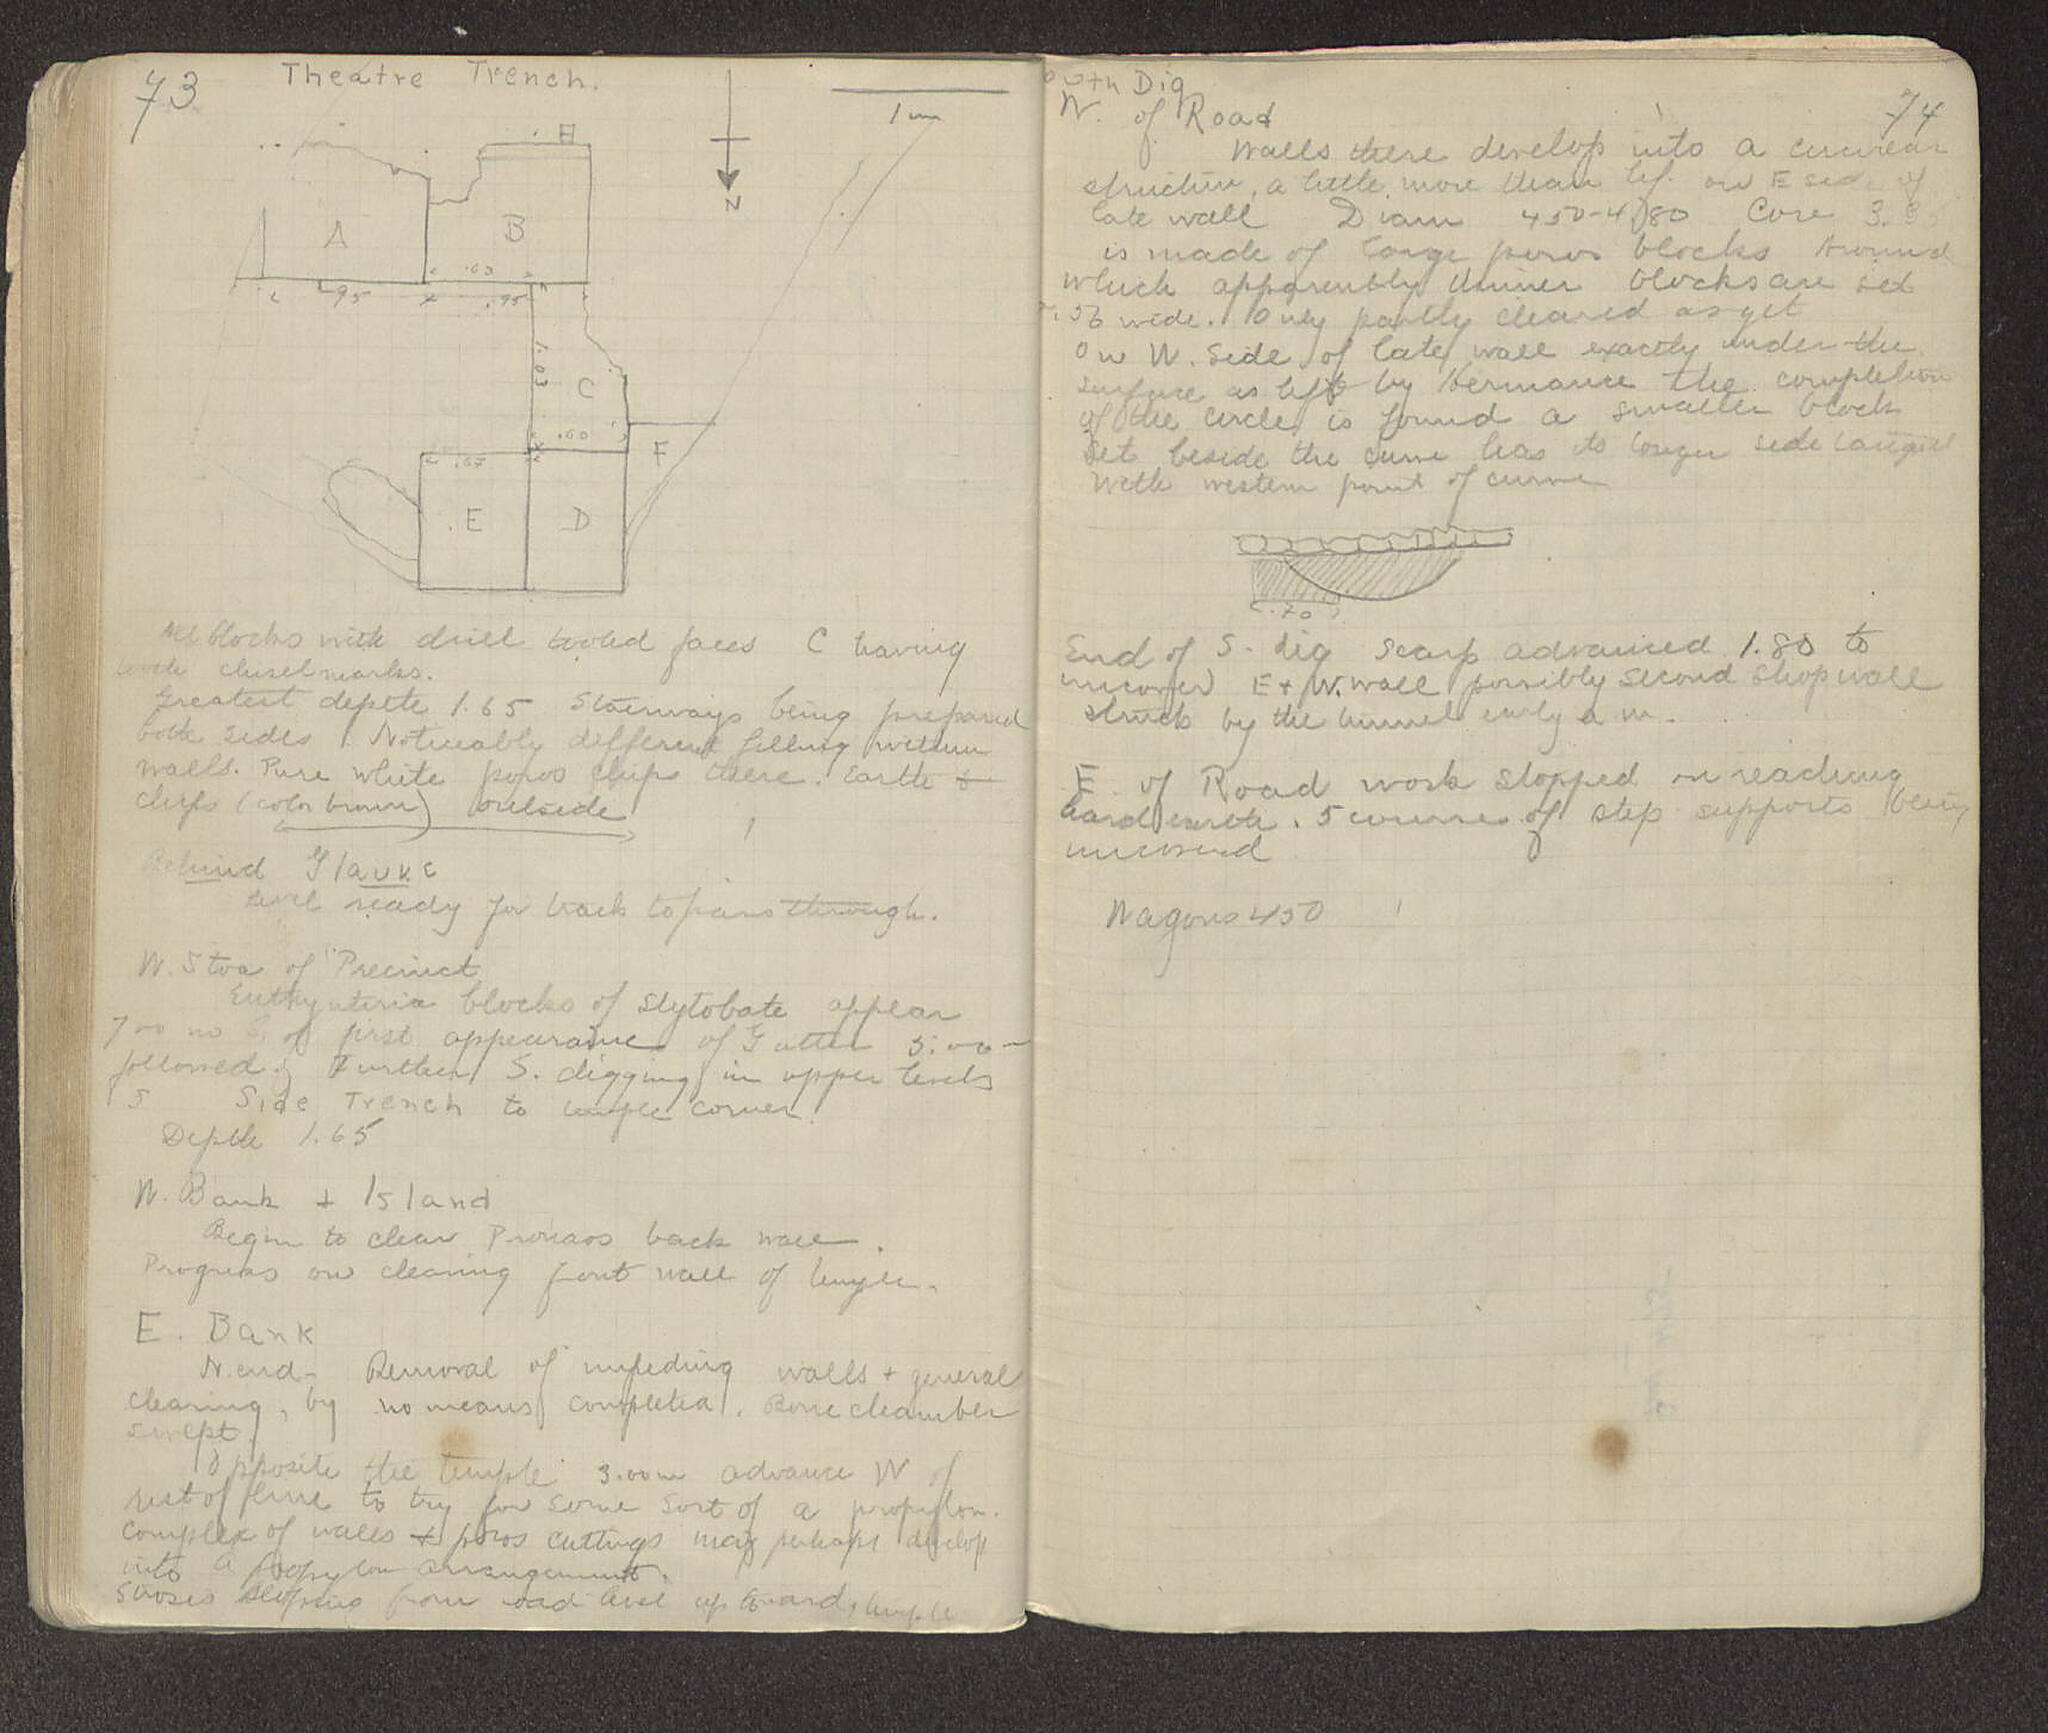 73
Theatre Trench.
1 m
N
H
A
B
.63
.95
.95
1.03
C
.60
F
.65
E
D
All blocks with drill tooled faces C having
chisel marks.
Greatest depth 1.65 Stairways being prepared
both sides. Noticeably different filling within
walls. Pure white poros chips there. Earth +
chips (color brown) outside
Behind Glauke
Level ready for track to pass through.
W. Stoa of Precinct
Euthynteria blocks of stytobate appear
7.00 m S. of first appearance of Gutter 5.00
followed. Further S. digging in upper levels
S Side Trench to temple corner.
Depth 1.65
W. Bank + Island
Begin to clear Pronaos back wall.
Progress on clearing font wall of temple.
E. Bank
N. end - Removal of impeding walls + general
clearing, by no means completed. Bone chamber
swept.
Opposite the temple 3.00m advance W of
rest of line to try for some sort of a propylon.
Complex of walls + poros cuttings may perhaps develop
into a propylon arrangement.
sloping from road level up toward temple
South Dig
74
W. of Road
Walls there develop into a circular
structure, a little more than hf. on E side of
late wall Diam 450-4.80 Core 3.
is made of large poros blocks Around
which apparently thinner blocks are set
.56 wide. Only partly cleared as yet
On W. side of late wall exactly under the
surface as left by Hermance the completion
of the circle is found a smaller block
Set beside the curve has its longer side
with western point of curve
.70
End of S. dig scarp advanced 1.80 to
uncover E + W. wall possibly second shop wall
struck by the tunnel early a.m.
E. of Road work stopped on reaching
hard earth. 5 courses of step supports being
uncovered
Wagons 450